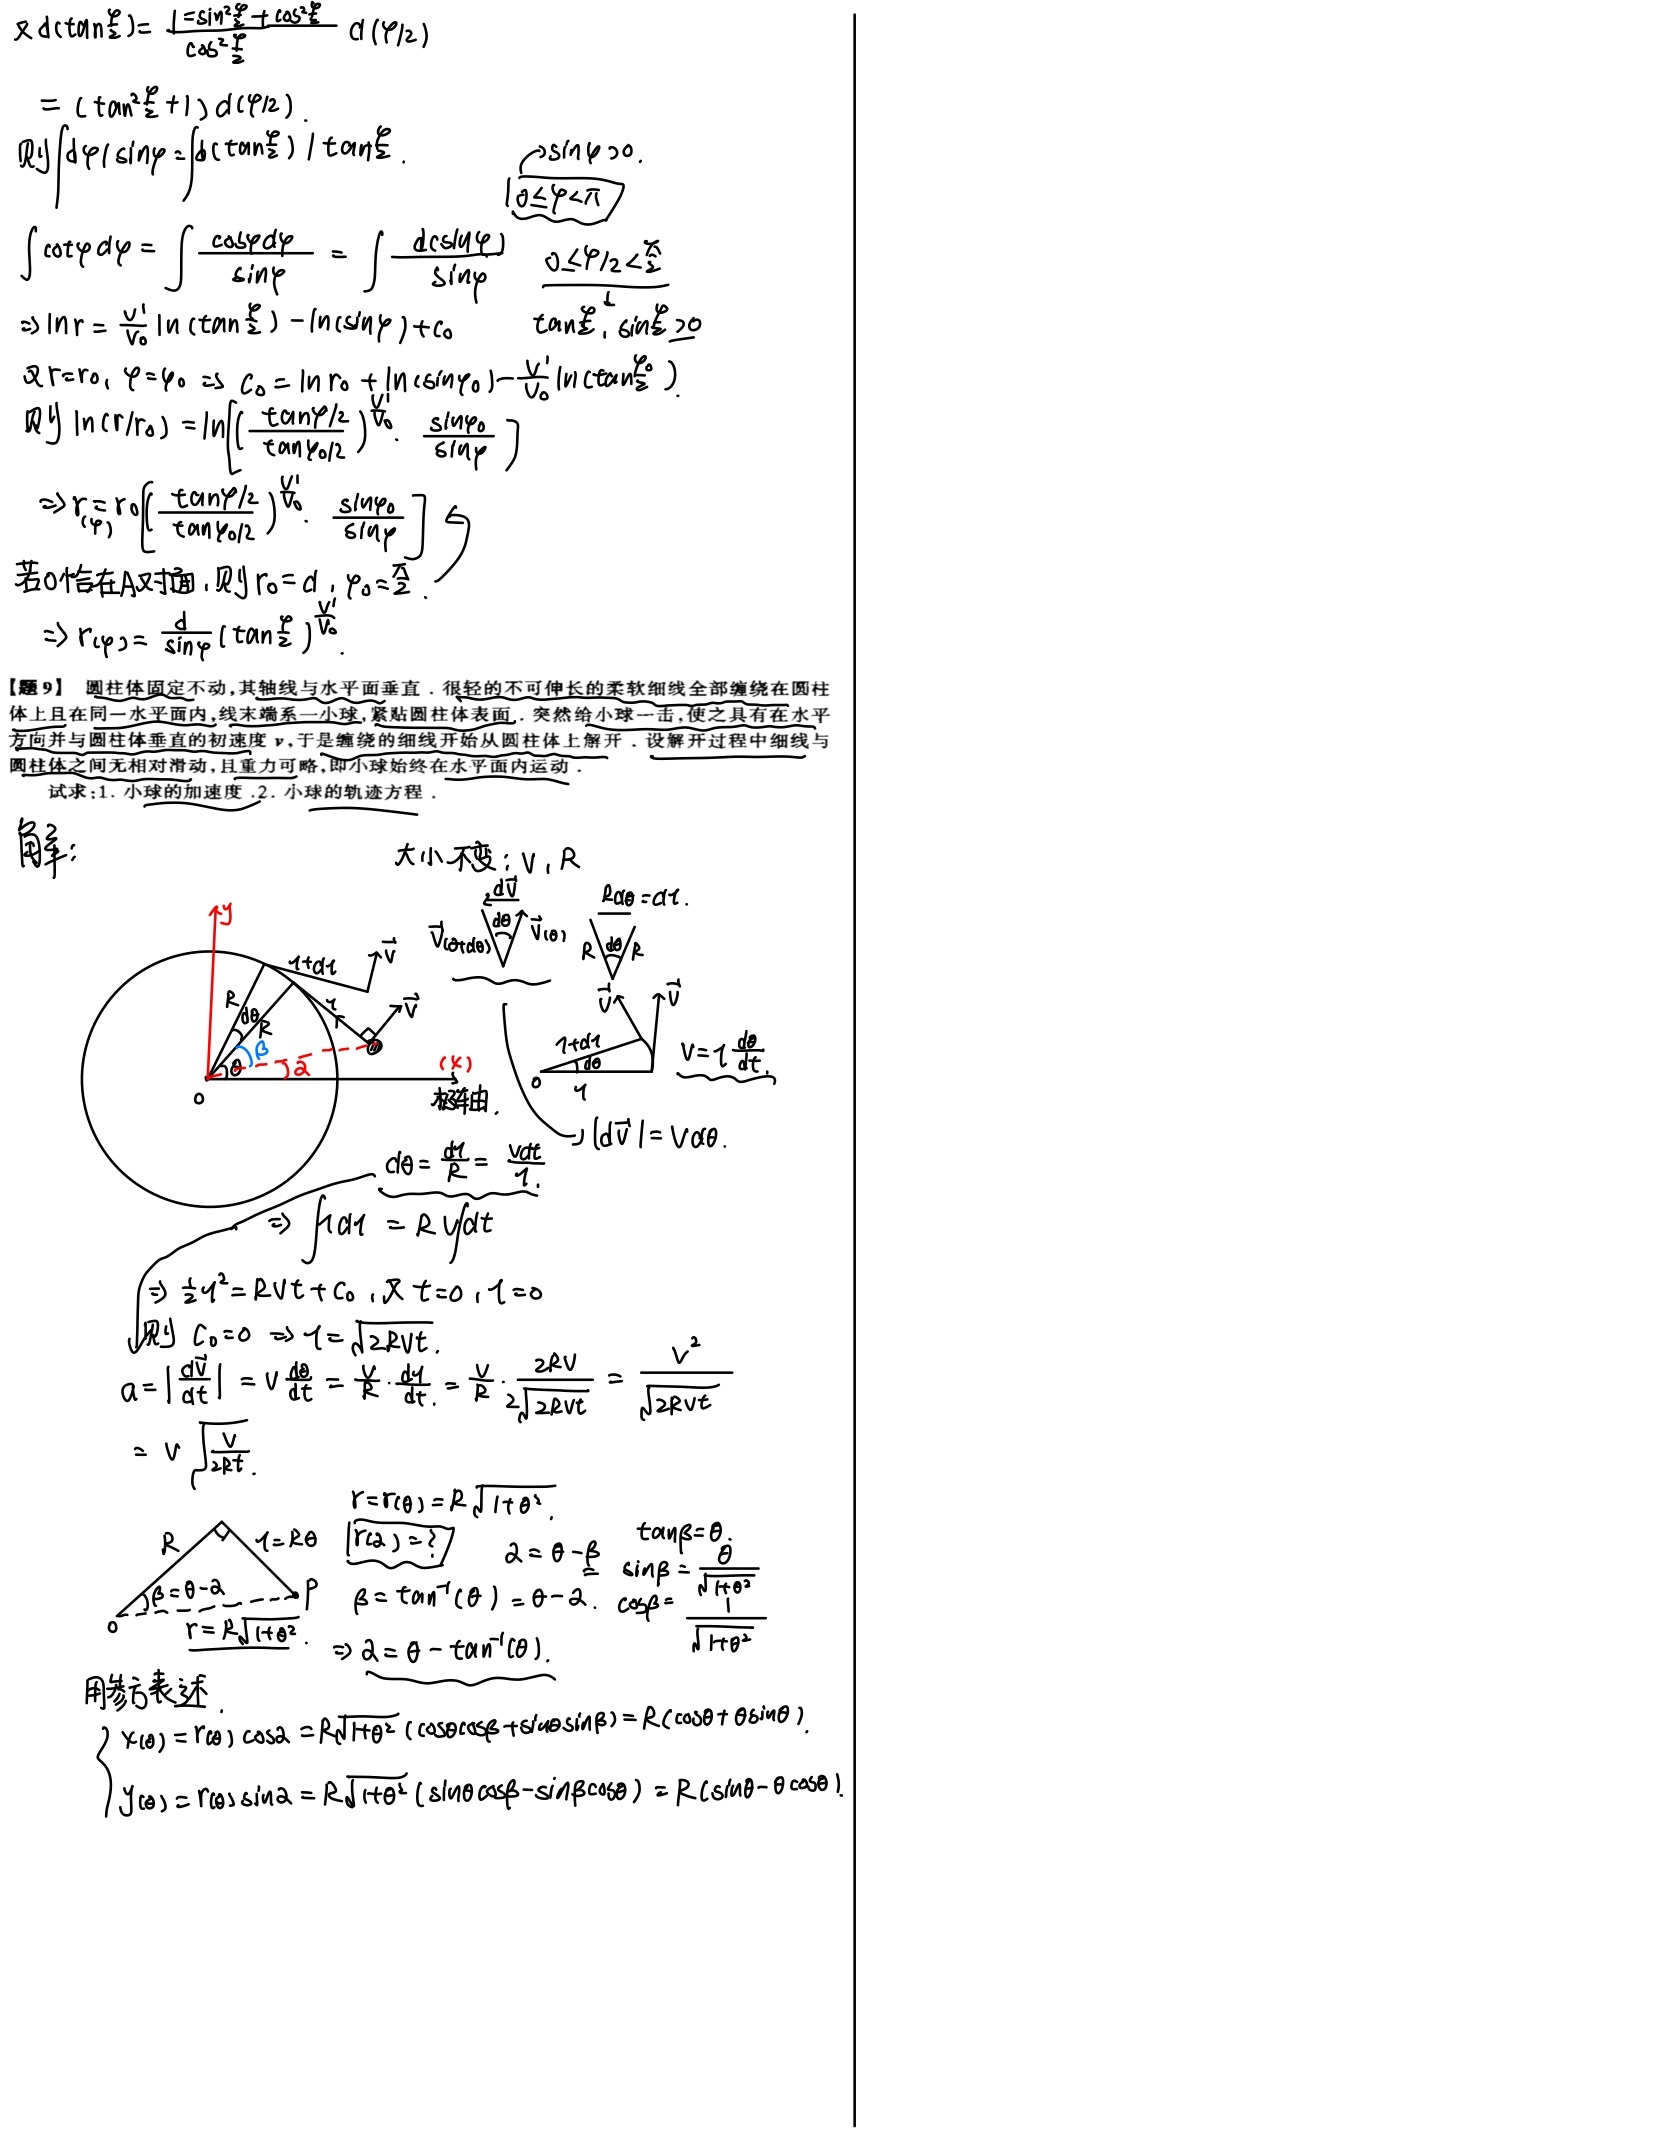 又 d(tan φ/2) = (1 = sin² φ/2 + cos² φ/2) / (cos² φ/2) d(φ/2)
= (tan² φ/2 + 1) d(φ/2).
则 ∫dφ/sinφ = ∫d(tan φ/2) / tan φ/2.
→ sinφ>0.
0≤φ<π
∫cotφdφ = ∫ cosφdφ / sinφ = ∫ d(sinφ) / sinφ
0≤φ/2<π/2
⇒ ln r = v'/v₀ ln(tan φ/2) - ln(sinφ) + C₀
tan φ/2, sin φ/2 >0
又 r=r₀, φ=φ₀ ⇒ C₀ = ln r₀ + ln(sinφ₀) - v'/v₀ ln(tan φ₀/2).
则 ln(r/r₀) = ln[(tanφ/2 / tanφ₀/2)^(v'/v₀) · sinφ₀/sinφ]
⇒ r(φ) = r₀[(tanφ/2 / tanφ₀/2)^(v'/v₀) · sinφ₀/sinφ]
若O恰在A对面, 则 r₀=d, φ₀=π/2.
⇒ r(φ) = d/sinφ (tan φ/2)^(v'/v₀).
【题 9】 圆柱体固定不动,其轴线与水平面垂直.很轻的不可伸长的柔软细线全部缠绕在圆柱
体上且在同一水平面内,线末端系一小球,紧贴圆柱体表面.突然给小球一击,使之具有在水平
方向并与圆柱体垂直的初速度 v,于是缠绕的细线开始从圆柱体上解开.设解开过程中细线与
圆柱体之间无相对滑动,且重力可略,即小球始终在水平面内运动.
试求:1. 小球的加速度.2. 小球的轨迹方程.
解:
大小不变: v, R
dv⃗
dθ
v⃗(θ+dθ)
v⃗(θ)
Rdθ=dl.
R dθ R
y
l+dl
v⃗
R
dθ
R
l
v⃗
β
θ
α
(x)
O
极轴.
v⃗
v⃗
l+dl
dθ
O
l
v = l dθ/dt.
|dv⃗| = vdθ.
dθ = dl/R = vdt/l.
⇒ ∫ldl = Rv∫dt
⇒ ½l² = Rvt + C₀, 又 t=0, l=0
则 C₀=0 ⇒ l = √(2Rvt).
a = |dv⃗/dt| = v dθ/dt = v/R · dl/dt = v/R · 2Rv / 2√(2Rvt) = v² / √(2Rvt)
= v √(v/2Rt).
r=r(θ)=R√(1+θ²).
R
l=Rθ
β=θ-α
O
P
r=R√(1+θ²).
r(α)=?
α=θ-β
tanβ=θ.
sinβ = θ/√(1+θ²)
β=tan⁻¹(θ)=θ-α.
cosβ = 1/√(1+θ²)
⇒ α=θ-tan⁻¹(θ).
用参方表述.
x(θ) = r(θ)cosα = R√(1+θ²)(cosθcosβ+sinθsinβ) = R(cosθ+θsinθ).
y(θ) = r(θ)sinα = R√(1+θ²)(sinθcosβ-sinβcosθ) = R(sinθ-θcosθ).